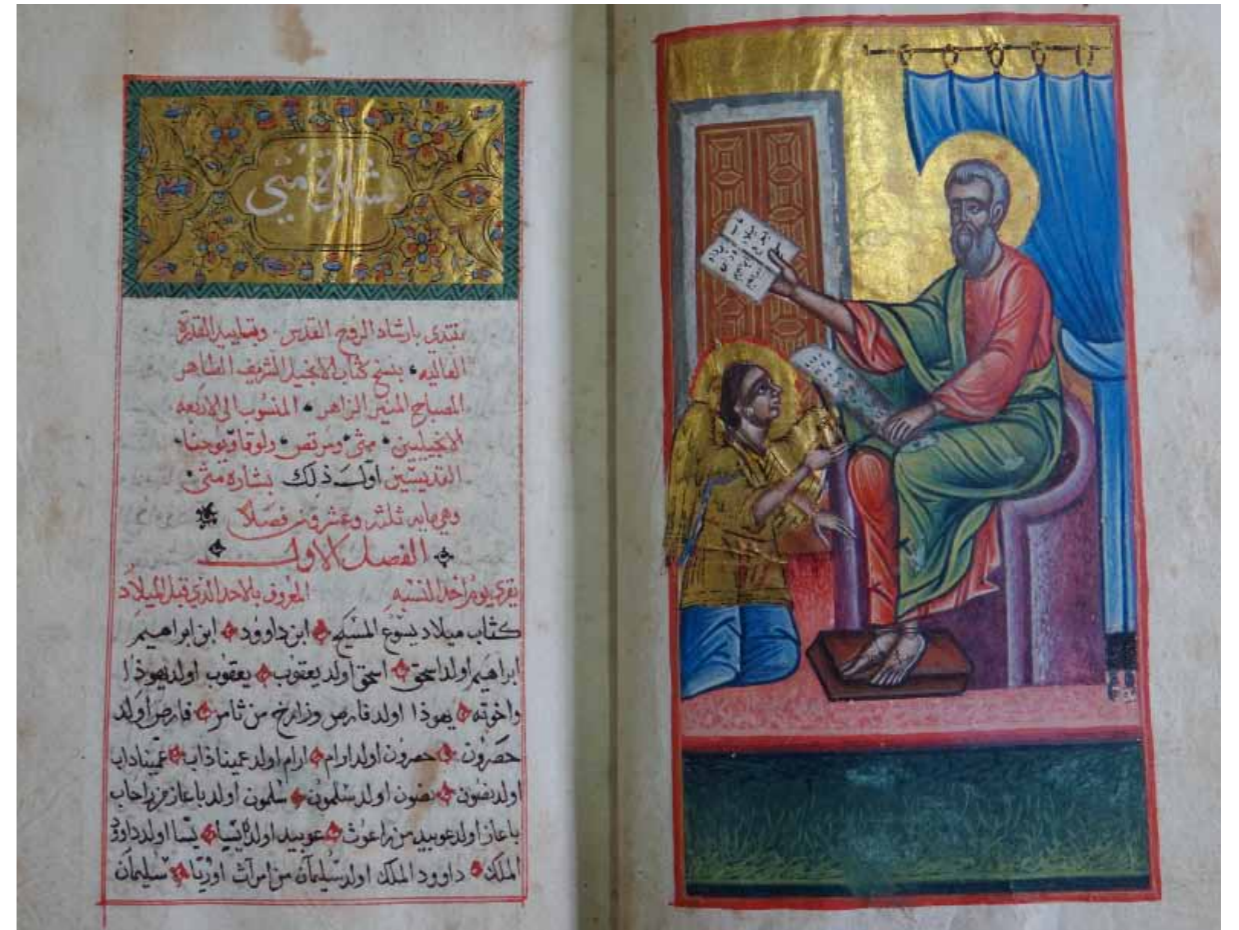 بشارة متي
نبتدي بارشاد الروح القدس وتسليد القدرة
العاليه بنسخ كتاب الانجيل الشريف الطاهر
المصباح المنير الزاهر المنسوب الى الاربعه
الانجيليين متى ومرقص ولوقا ويوحنا
القديسين اول ذلك بشارة متى
وهي مايه ثلثه وعشرون فصلاً
الفصل الاول
يقرى يوم احد النسبه المعروف بالاحد الذي قبل الميلاد
كتاب ميلاد يسوع المسيح ابن داوود ابن ابراهيم
ابراهيم اولد اسحق اسحق اولد يعقوب يعقوب اولد يهوذا
واخوته يهوذا اولد فارص وزارح من ثامر فارص اولد
حصرون حصرون اولد ارام ارام اولد عميناذاب عميناذاب
اولد نصون نصون اولد سلمون سلمون اولد باعاز من راحاب
باعاز اولد عوبيد من راعوث عوبيد اولد يسا يسا اولد داوود
الملك داوود الملك اولد سليمان من امراة اوريا سليمان